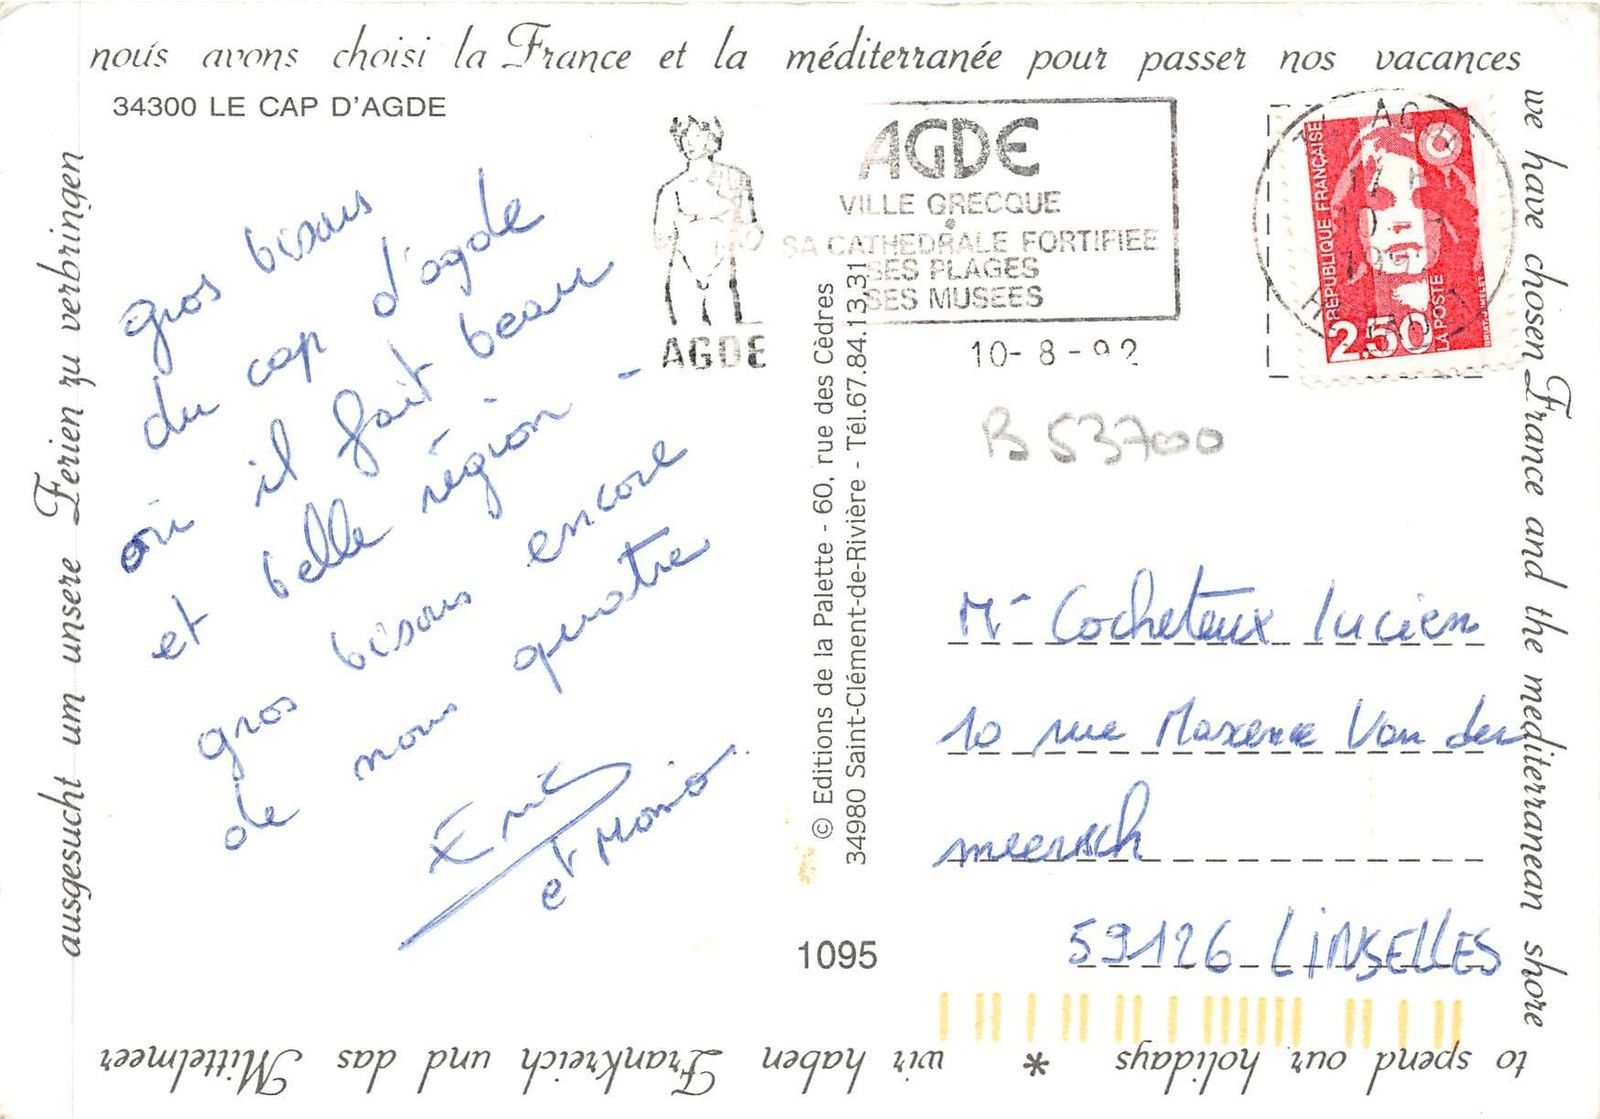 nous avons choisi la France et la méditerranée pour passer nos vacances
we have chosen France and the mediterranean shore
to spend our holidays * wir haben Frankreich und das Mittelmeer
ausgesucht um unsere Ferien zu verbringen
34300 LE CAP D'AGDE
gros bisous
du cap d'agde
où il fait beau
et belle région -
gros bisous encore
de nous quatre
Eric
et Monia
AGDE
AGDE
VILLE GRECQUE
SA CATHEDRALE FORTIFIEE
SES PLAGES
SES MUSEES
10-8-92
RÉPUBLIQUE FRANÇAISE
2,50
LA POSTE
© Editions de la Palette - 60, rue des Cèdres
34980 Saint-Clément-de-Rivière - Tél.67.84.13.31
1095
B 53700
Mr Cocheteux Lucien
10 rue Maxence Van der
meersch
59126 LINSELLES